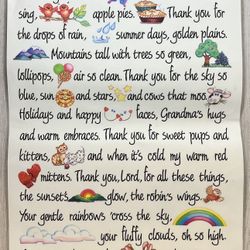 sing, apple pies. Thank you for
the drops of rain, summer days, golden plains.
Mountains tall with trees so green,
lollipops, air so clean. Thank you for the sky so
blue, sun and stars, and cows that moo.
Holidays and happy faces, Grandma's hugs
and warm embraces. Thank you for sweet pups and
kittens, and when it's cold my warm red
mittens. Thank you, Lord, for all these things,
the sunset's glow, the robin's wings.
Your gentle rainbows 'cross the sky,
your fluffy clouds, oh so high.